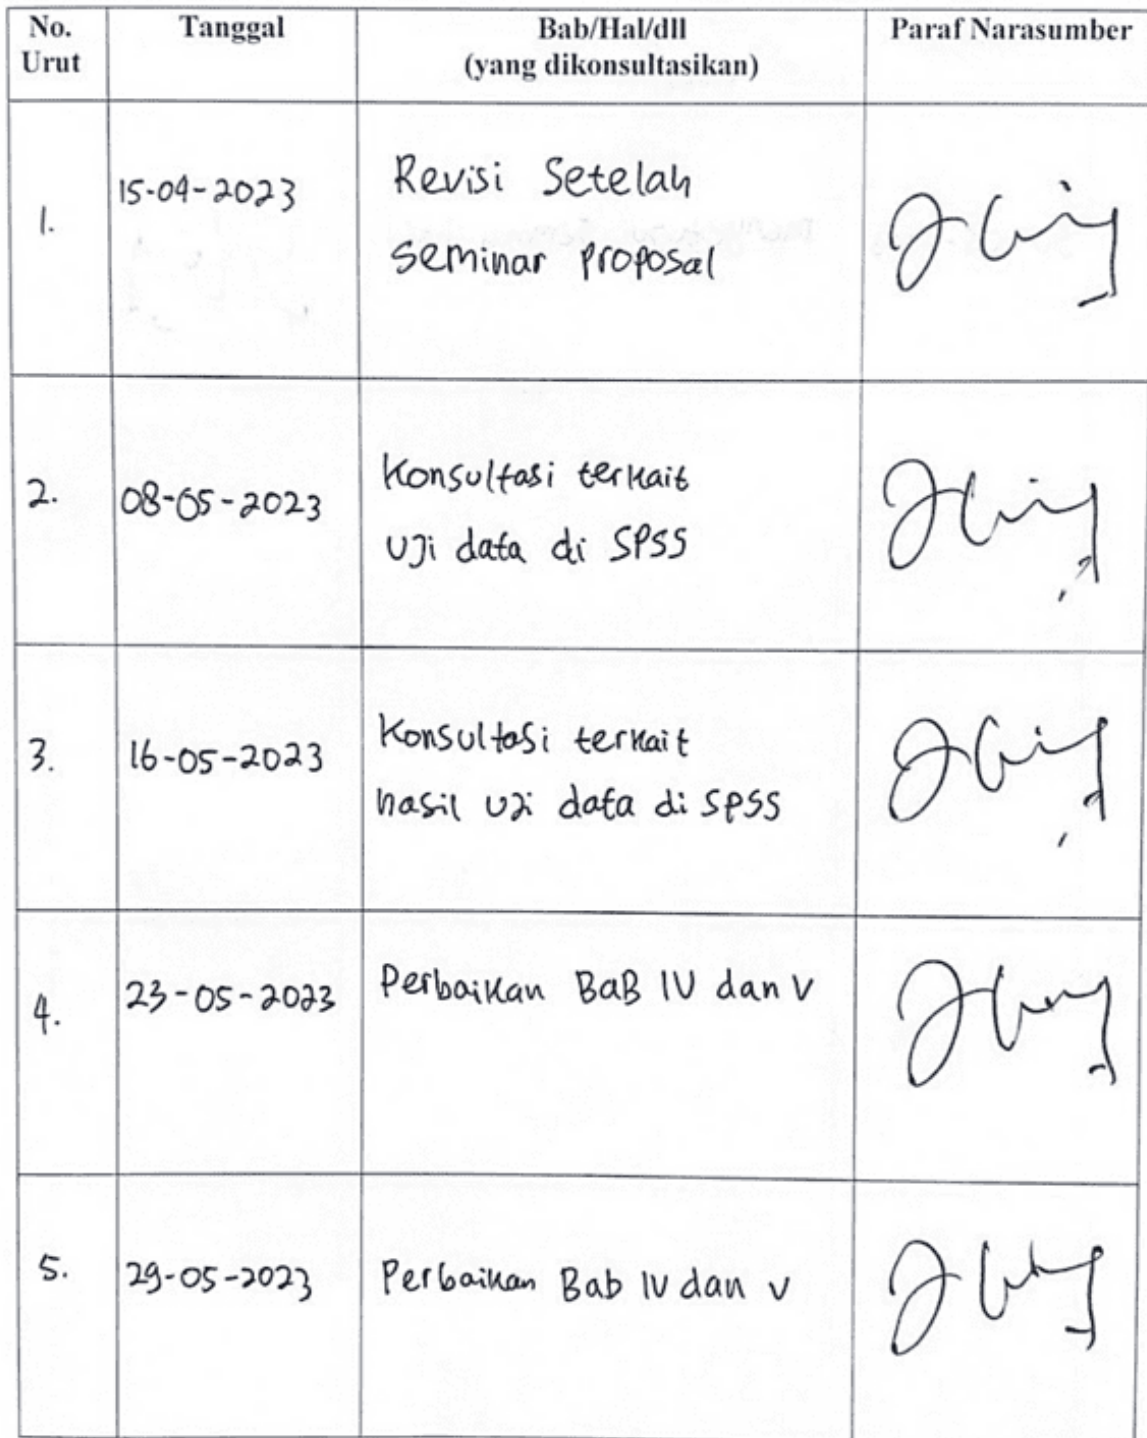 No. Urut
Tanggal
Bab/Hal/dll
(yang dikonsultasikan)
Paraf Narasumber
1.
15-04-2023
Revisi Setelah
seminar proposal
2.
08-05-2023
Konsultasi terkait
Uji data di SPSS
3.
16-05-2023
Konsultasi terkait
hasil uji data di SPSS
4.
23-05-2023
Perbaikan BaB IV dan V
5.
29-05-2023
Perbaikan Bab IV dan V